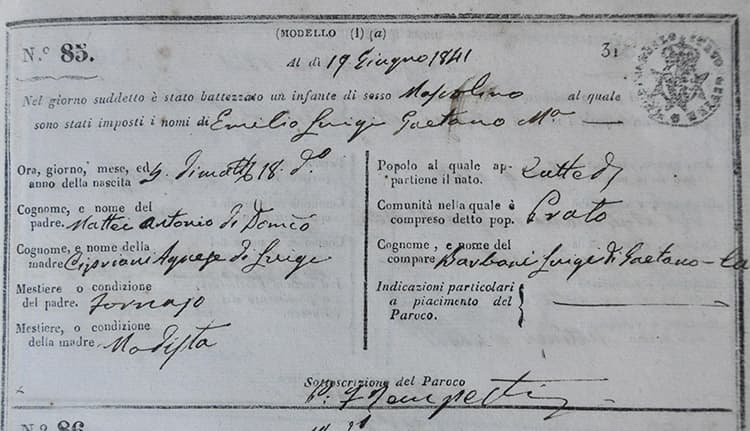 (MODELLO (I) (a)
N.º 85.
31
Al dì 19 Giugno 1841
Nel giorno suddetto è stato battezzato un infante di sesso Mascolino al quale
sono stati imposti i nomi di Emilio Luigi Gaetano Mª
Ora, giorno, mese, ed
anno della nascita 4. di matª 18. dº
Cognome, e nome del
padre. Mattei Antonio di Domcõ
Cognome, e nome della
madre Cipriani Agnese di Luigi
Mestiere o condizione
del padre. Fornajo
Mestiere, o condizione
della madre. Modista
Popolo al quale ap-
partiene il nato.
Comunità nella quale è
compreso detto pop. Prato
Cognome, e nome del
compare Barbani Luigi di Gaetano
Indicazioni particolari
a piacimento del
Paroco.
Sottoscrizione del Paroco
N.º 86.